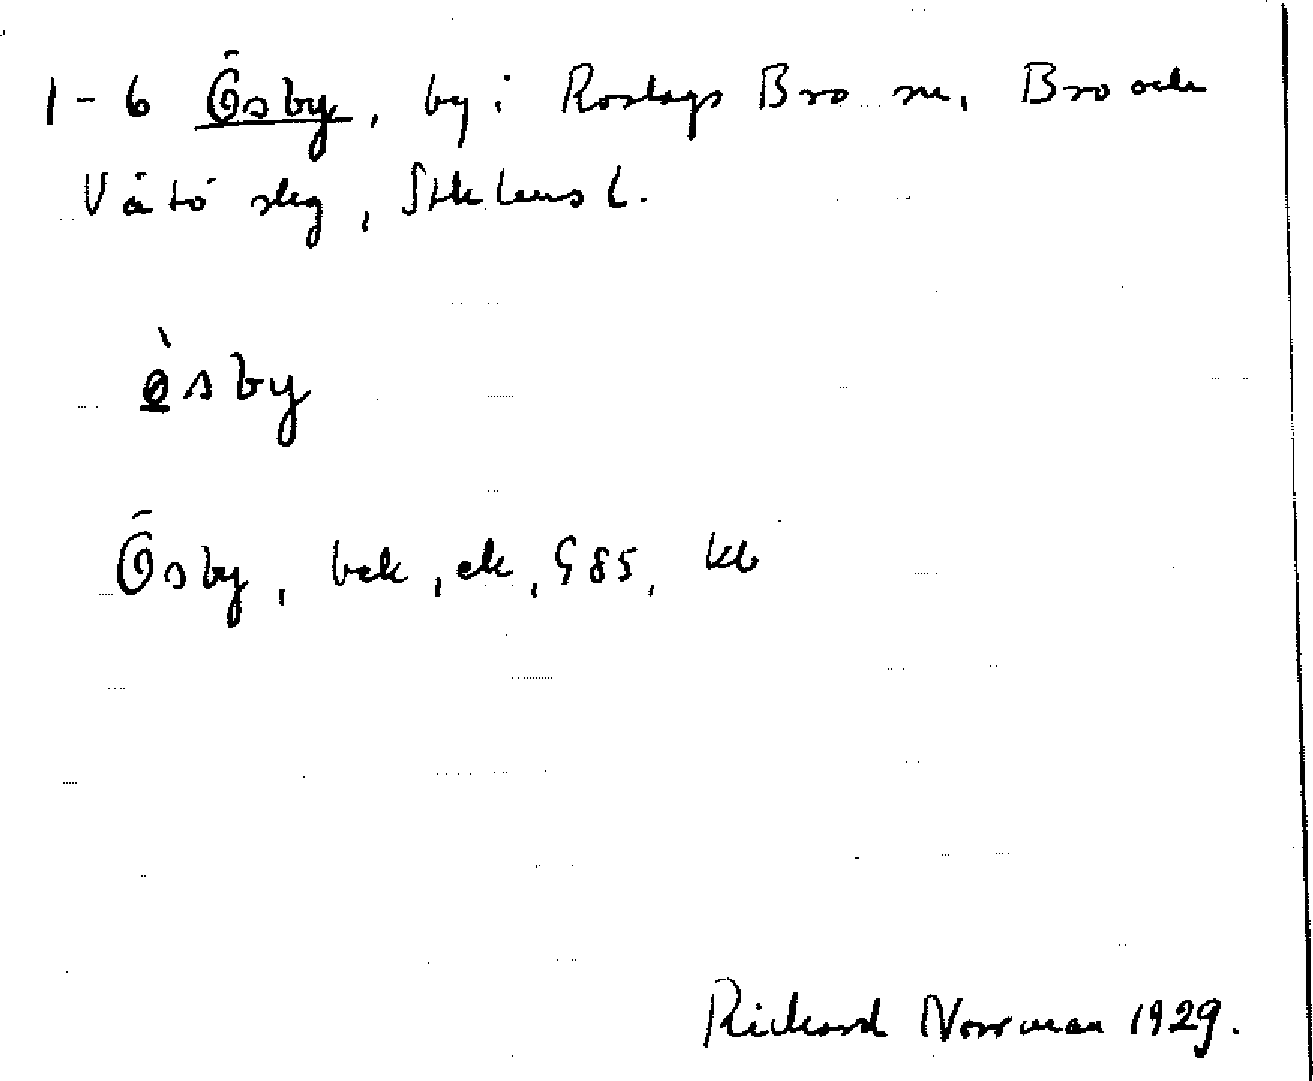 1-6 Ösby, by i Roslags Bro sn, Bro och
Vätö skg, Sthlms l.
ö̀sby
Ösby, bek, ek, § 85, kb
Rickard Norrman 1929.